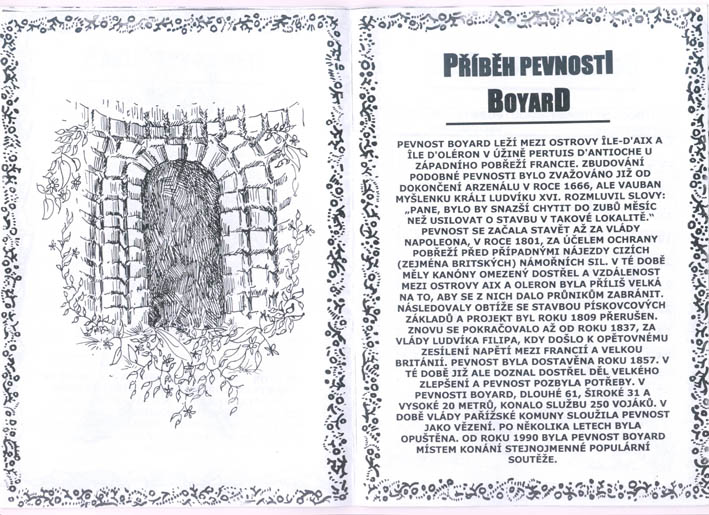 PŘÍBĚH PEVNOSTI
BOYARD
PEVNOST BOYARD LEŽÍ MEZI OSTROVY ÎLE-D'AIX A
ÎLE D'OLÉRON V ÚŽINĚ PERTUIS D'ANTIOCHE U
ZÁPADNÍHO POBŘEŽÍ FRANCIE. ZBUDOVÁNÍ
PODOBNÉ PEVNOSTI BYLO ZVAŽOVÁNO JIŽ OD
DOKONČENÍ ARZENÁLU V ROCE 1666, ALE VAUBAN
MYŠLENKU KRÁLI LUDVÍKU XVI. ROZMLUVIL SLOVY:
„PANE, BYLO BY SNAZŠÍ CHYTIT DO ZUBŮ MĚSÍC
NEŽ USILOVAT O STAVBU V TAKOVÉ LOKALITĚ.“
PEVNOST SE ZAČALA STAVĚT AŽ ZA VLÁDY
NAPOLEONA, V ROCE 1801, ZA ÚČELEM OCHRANY
POBŘEŽÍ PŘED PŘÍPADNÝMI NÁJEZDY CIZÍCH
(ZEJMÉNA BRITSKÝCH) NÁMOŘNÍCH SIL. V TÉ DOBĚ
MĚLY KANÓNY OMEZENÝ DOSTŘEL A VZDÁLENOST
MEZI OSTROVY AIX A OLERON BYLA PŘÍLIŠ VELKÁ
NA TO, ABY SE Z NICH DALO PRŮNIKŮM ZABRÁNIT.
NÁSLEDOVALY OBTÍŽE SE STAVBOU PÍSKOVCOVÝCH
ZÁKLADŮ A PROJEKT BYL ROKU 1809 PŘERUŠEN.
ZNOVU SE POKRAČOVALO AŽ OD ROKU 1837, ZA
VLÁDY LUDVÍKA FILIPA, KDY DOŠLO K OPĚTOVNÉMU
ZESÍLENÍ NAPĚTÍ MEZI FRANCIÍ A VELKOU
BRITÁNIÍ. PEVNOST BYLA DOSTAVĚNA ROKU 1857. V
TÉ DOBĚ JIŽ ALE DOZNAL DOSTŘEL DĚL VELKÉHO
ZLEPŠENÍ A PEVNOST POZBYLA POTŘEBY. V
PEVNOSTI BOYARD, DLOUHÉ 61, ŠIROKÉ 31 A
VYSOKÉ 20 METRŮ, KONALO SLUŽBU 250 VOJÁKŮ. V
DOBĚ VLÁDY PAŘÍŽSKÉ KOMUNY SLOUŽILA PEVNOST
JAKO VĚZENÍ. PO NĚKOLIKA LETECH BYLA
OPUŠTĚNA. OD ROKU 1990 BYLA PEVNOST BOYARD
MÍSTEM KONÁNÍ STEJNOJMENNÉ POPULÁRNÍ
SOUTĚŽE.